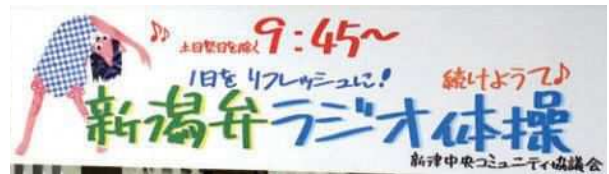 土日祭日を除く 9:45〜
1日をリフレッシュに! 続けようて♪
新潟弁ラジオ体操
新津中央コミュニティ協議会